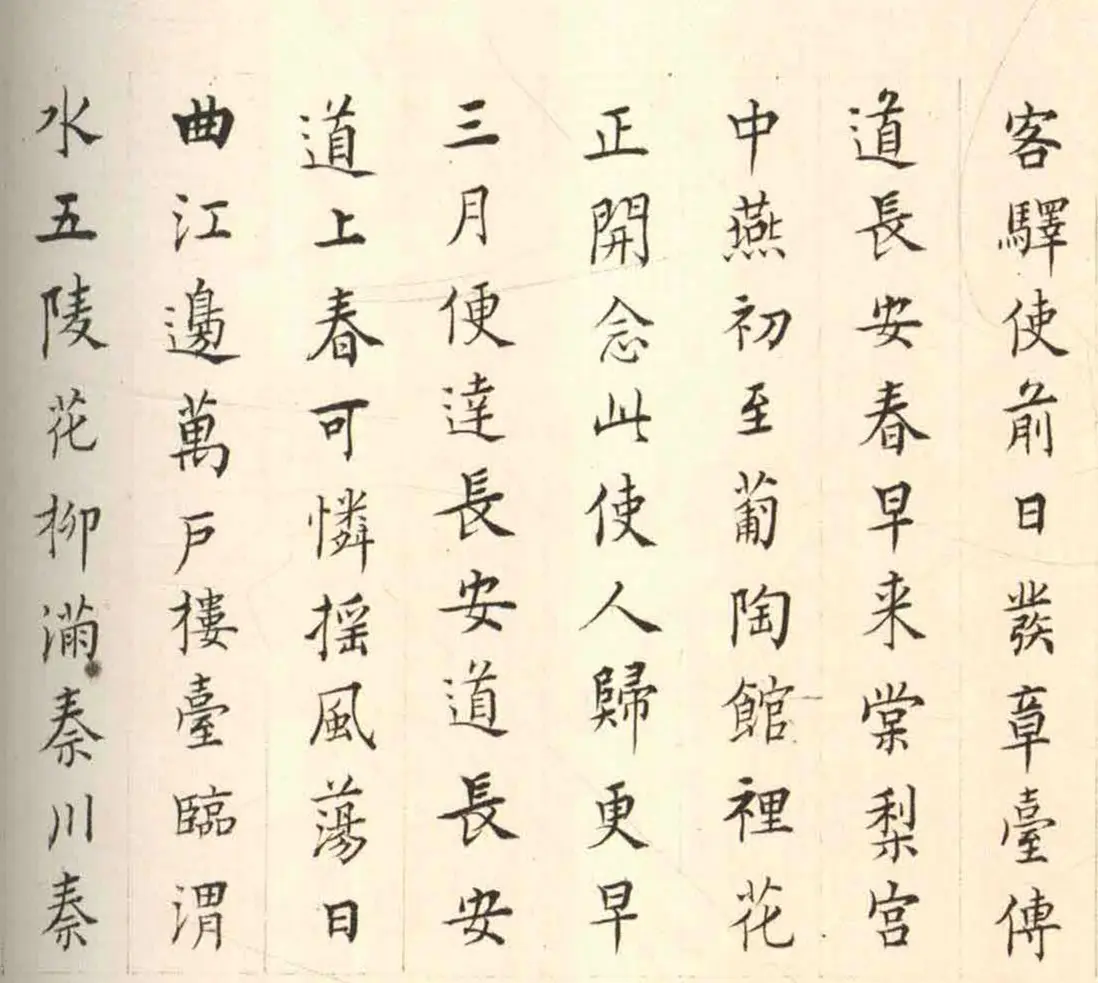 客驛使前日發章臺傳
道長安春早来棠梨宫
中燕初至葡陶館裡花
正開念此使人歸更早
三月便達長安道長安
道上春可憐摇風蕩日
曲江邊萬戶樓臺臨渭
水五陵花柳滿秦川秦